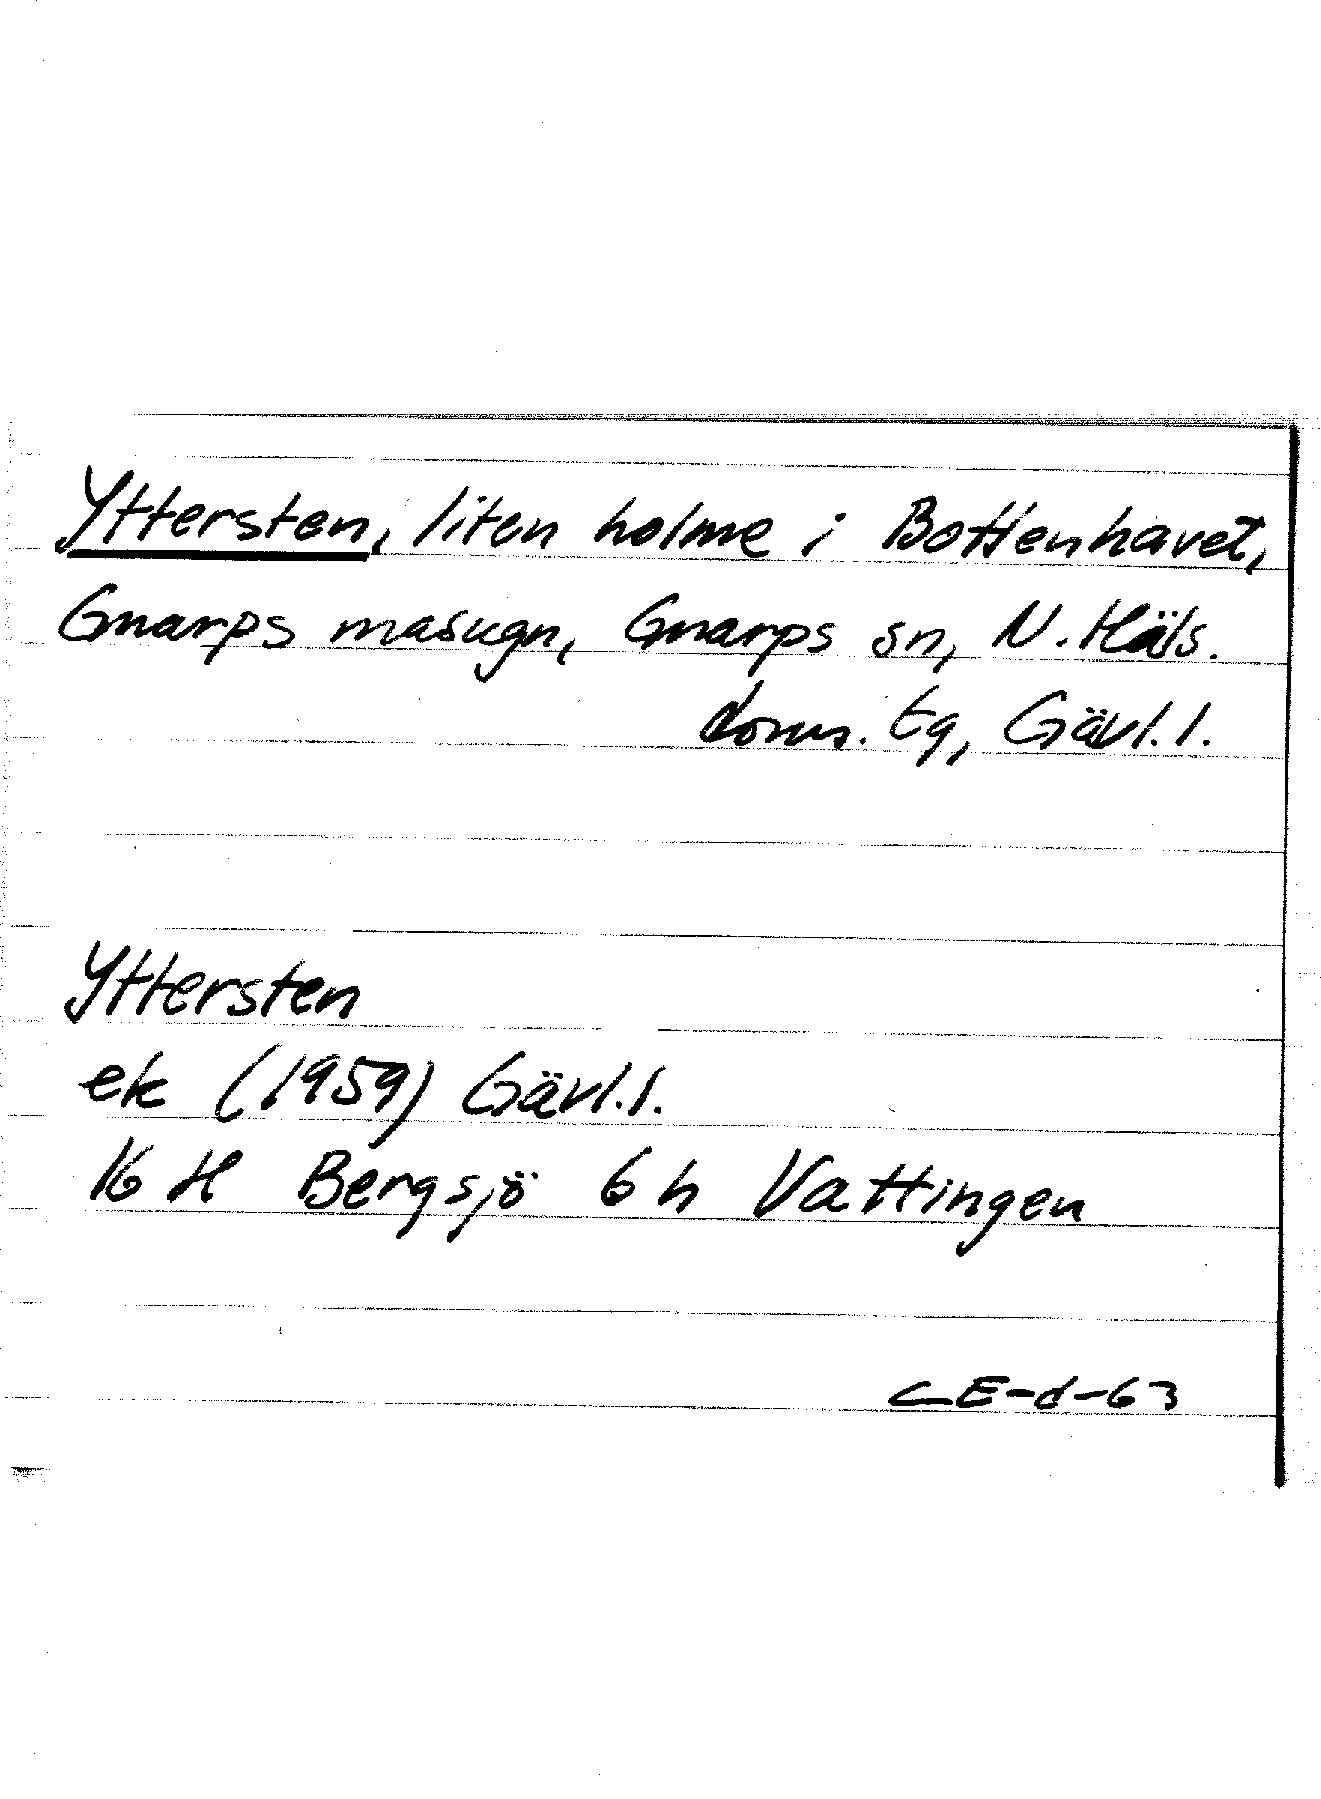 Yttersten, liten holme i Bottenhavet,
Gnarps masugn, Gnarps sn, N. Häls.
doms. tg, Gävl. l.
Yttersten
ek (1959) Gävl. l.
16 H Bergsjö 6 h Vattingen
CE-d-63